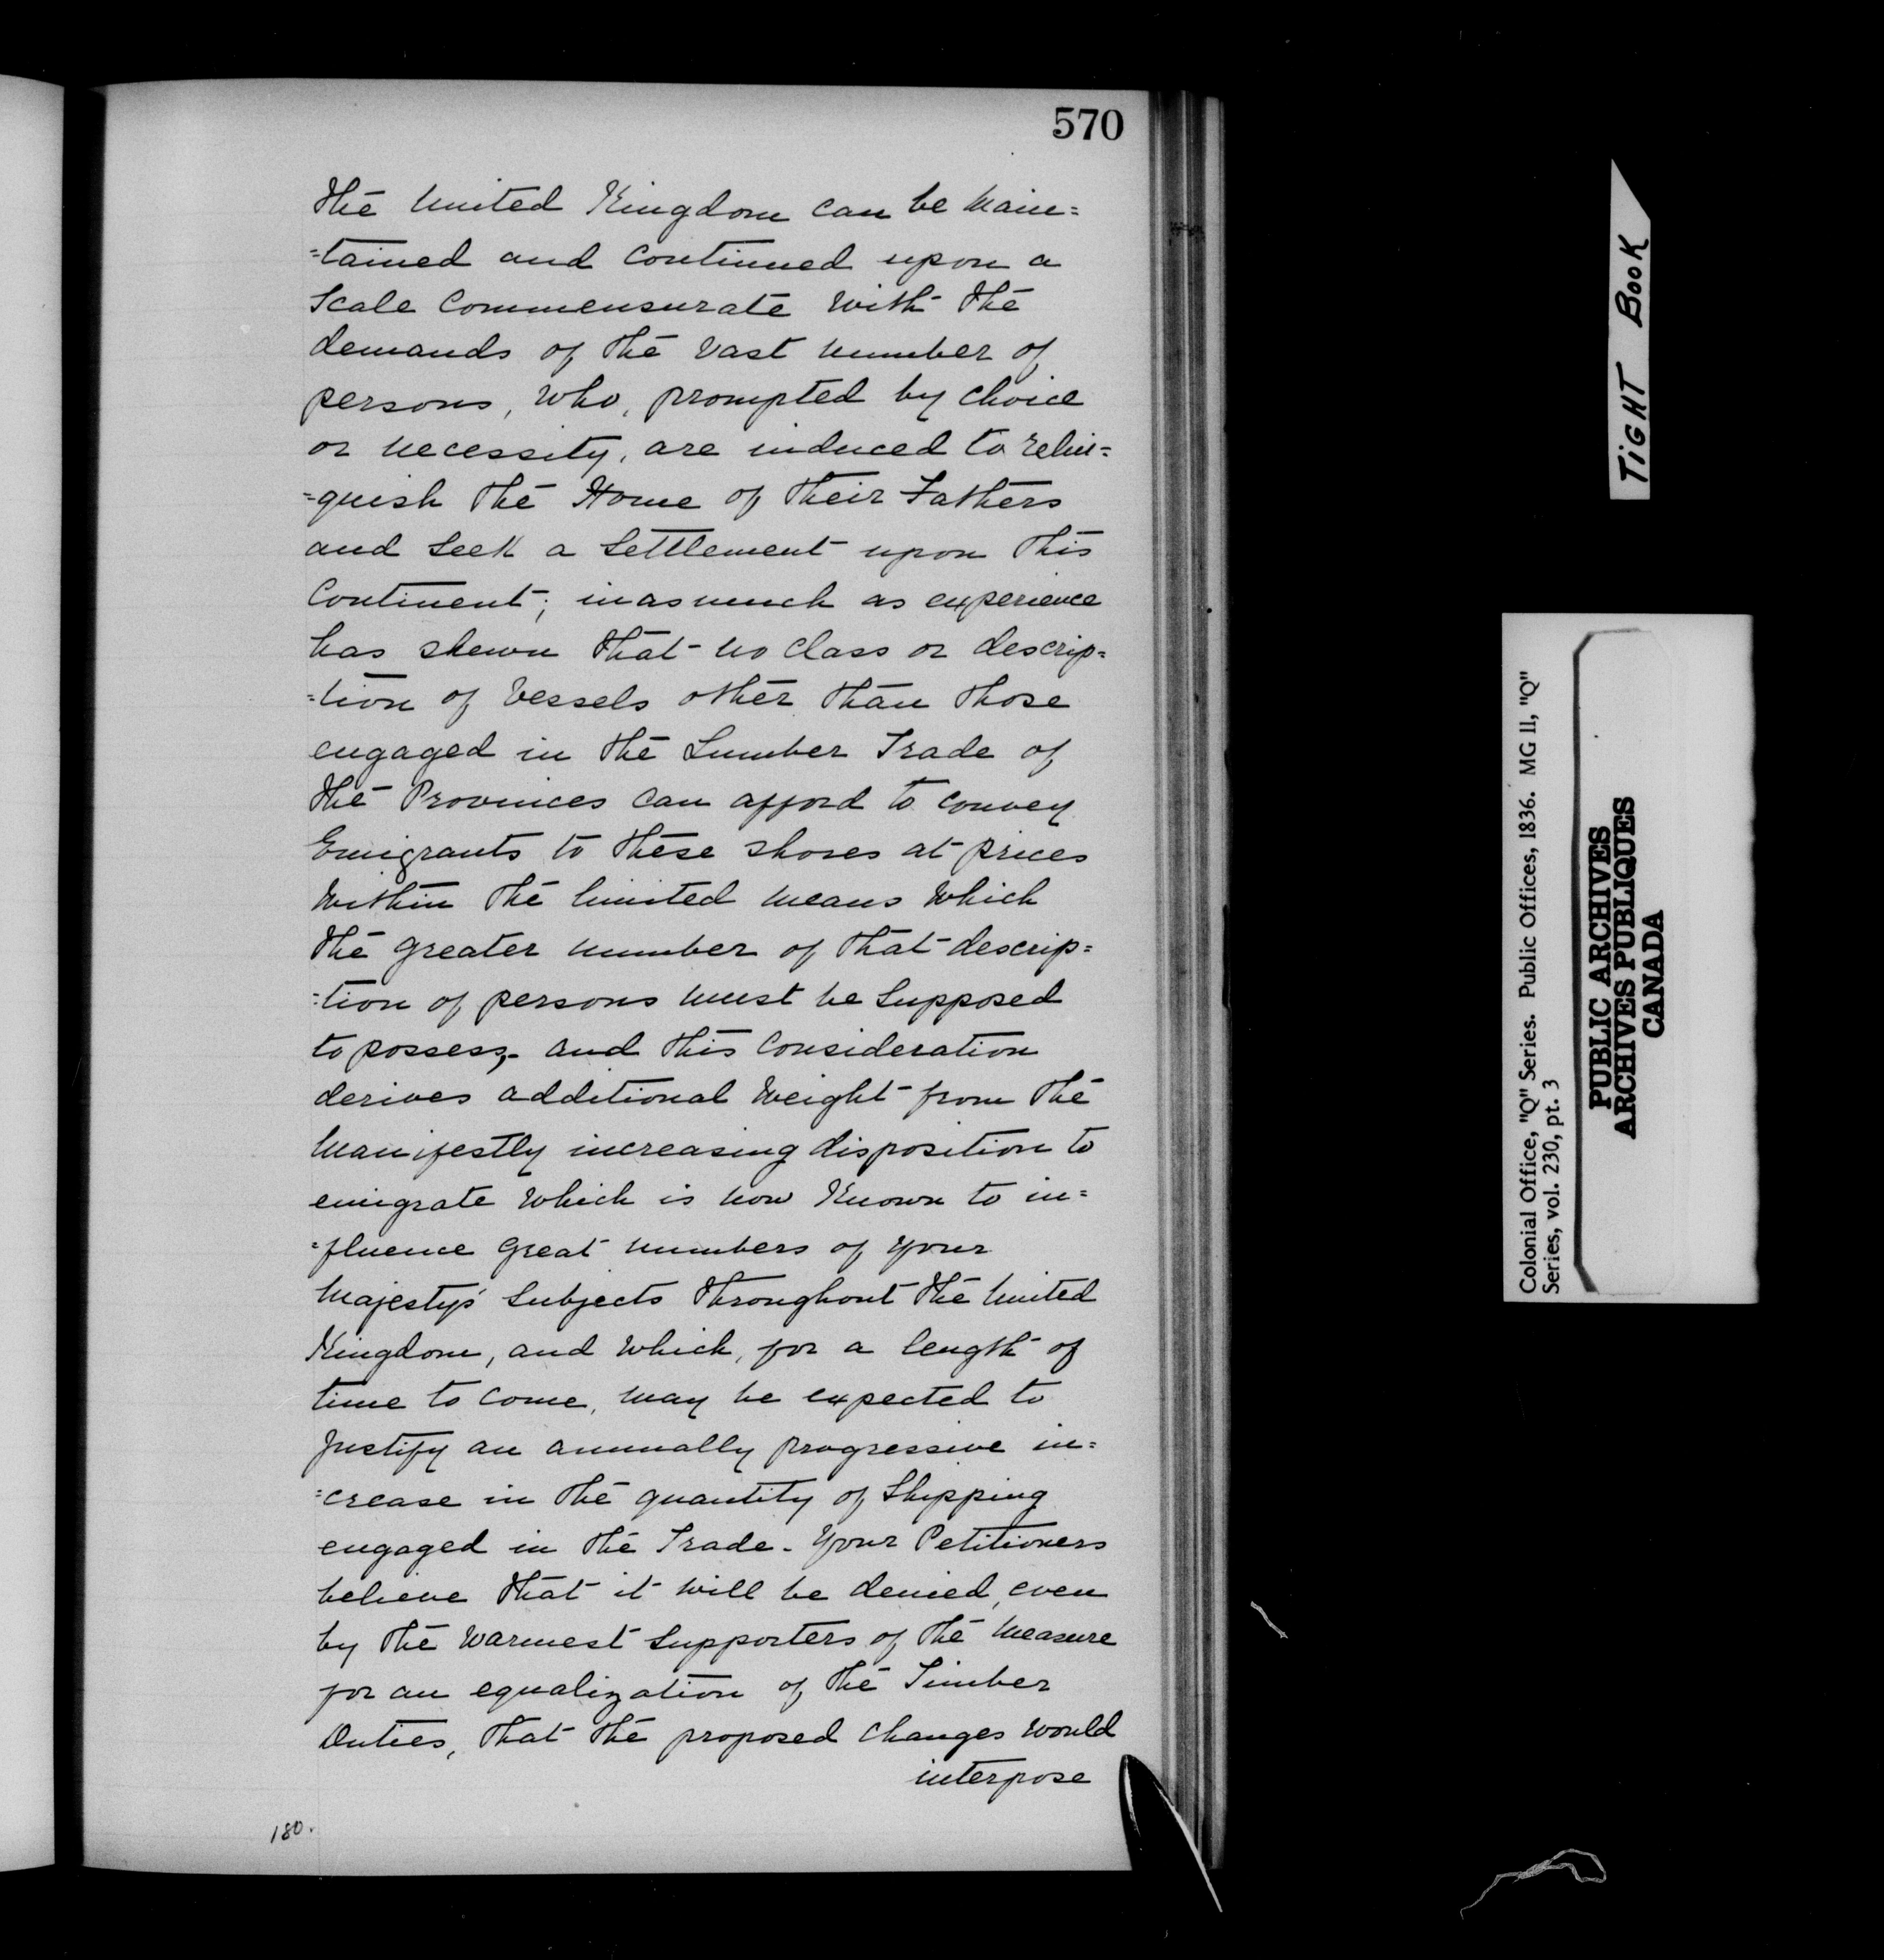 570
the United Kingdom can be main=
=tained and continued upon a
Scale Commensurate with the
demands of the vast number of
persons, who, prompted by choice
or necessity, are induced to relin=
=quish the Home of their Fathers
and Seek a Settlement upon this
Continent; inasmuch as experience
has shewn that no class or descrip=
=tion of Vessels other than those
engaged in the Lumber Trade of
the Provinces can afford to convey
Emigrants to these shores at prices
within the limited means which
the greater number of that descrip=
=tion of persons must be Supposed
to possess,- and this Consideration
derives additional weight from the
manifestly increasing disposition to
emigrate which is now Known to in=
=fluence Great numbers of Your
Majesty's Subjects throughout the United
Kingdom, and which, for a length of
time to come, may be expected to
justify an annually progressive in=
=crease in the quantity of Shipping
engaged in the Trade. Your Petitioners
believe that it will be denied, even
by the warmest Supporters of the measure
for an equalization of the Timber
Duties, that the proposed changes would
interpose
180.
TIGHT BOOK
Colonial Office, "Q" Series. Public Offices, 1836. MG 11, "Q"
Series, vol. 230, pt. 3
PUBLIC ARCHIVES
ARCHIVES PUBLIQUES
CANADA